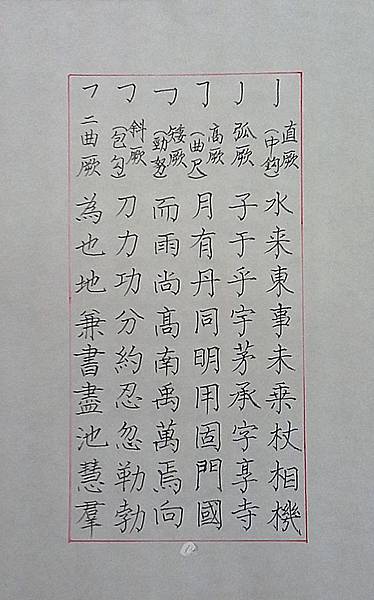 亅 直厥(中鈎) 水来東事未乗杖相機
亅 弧厥 子于乎宇茅承字享寺
㇆ 高厥(曲尺) 月有丹同明用固門國
㇆ 矮厥(勁努) 而雨尚髙南禹萬焉向
㇆ 斜厥(包勾) 刀力功分約忍忽勒勃
乛 二曲厥 為也地兼書盡池慧羣